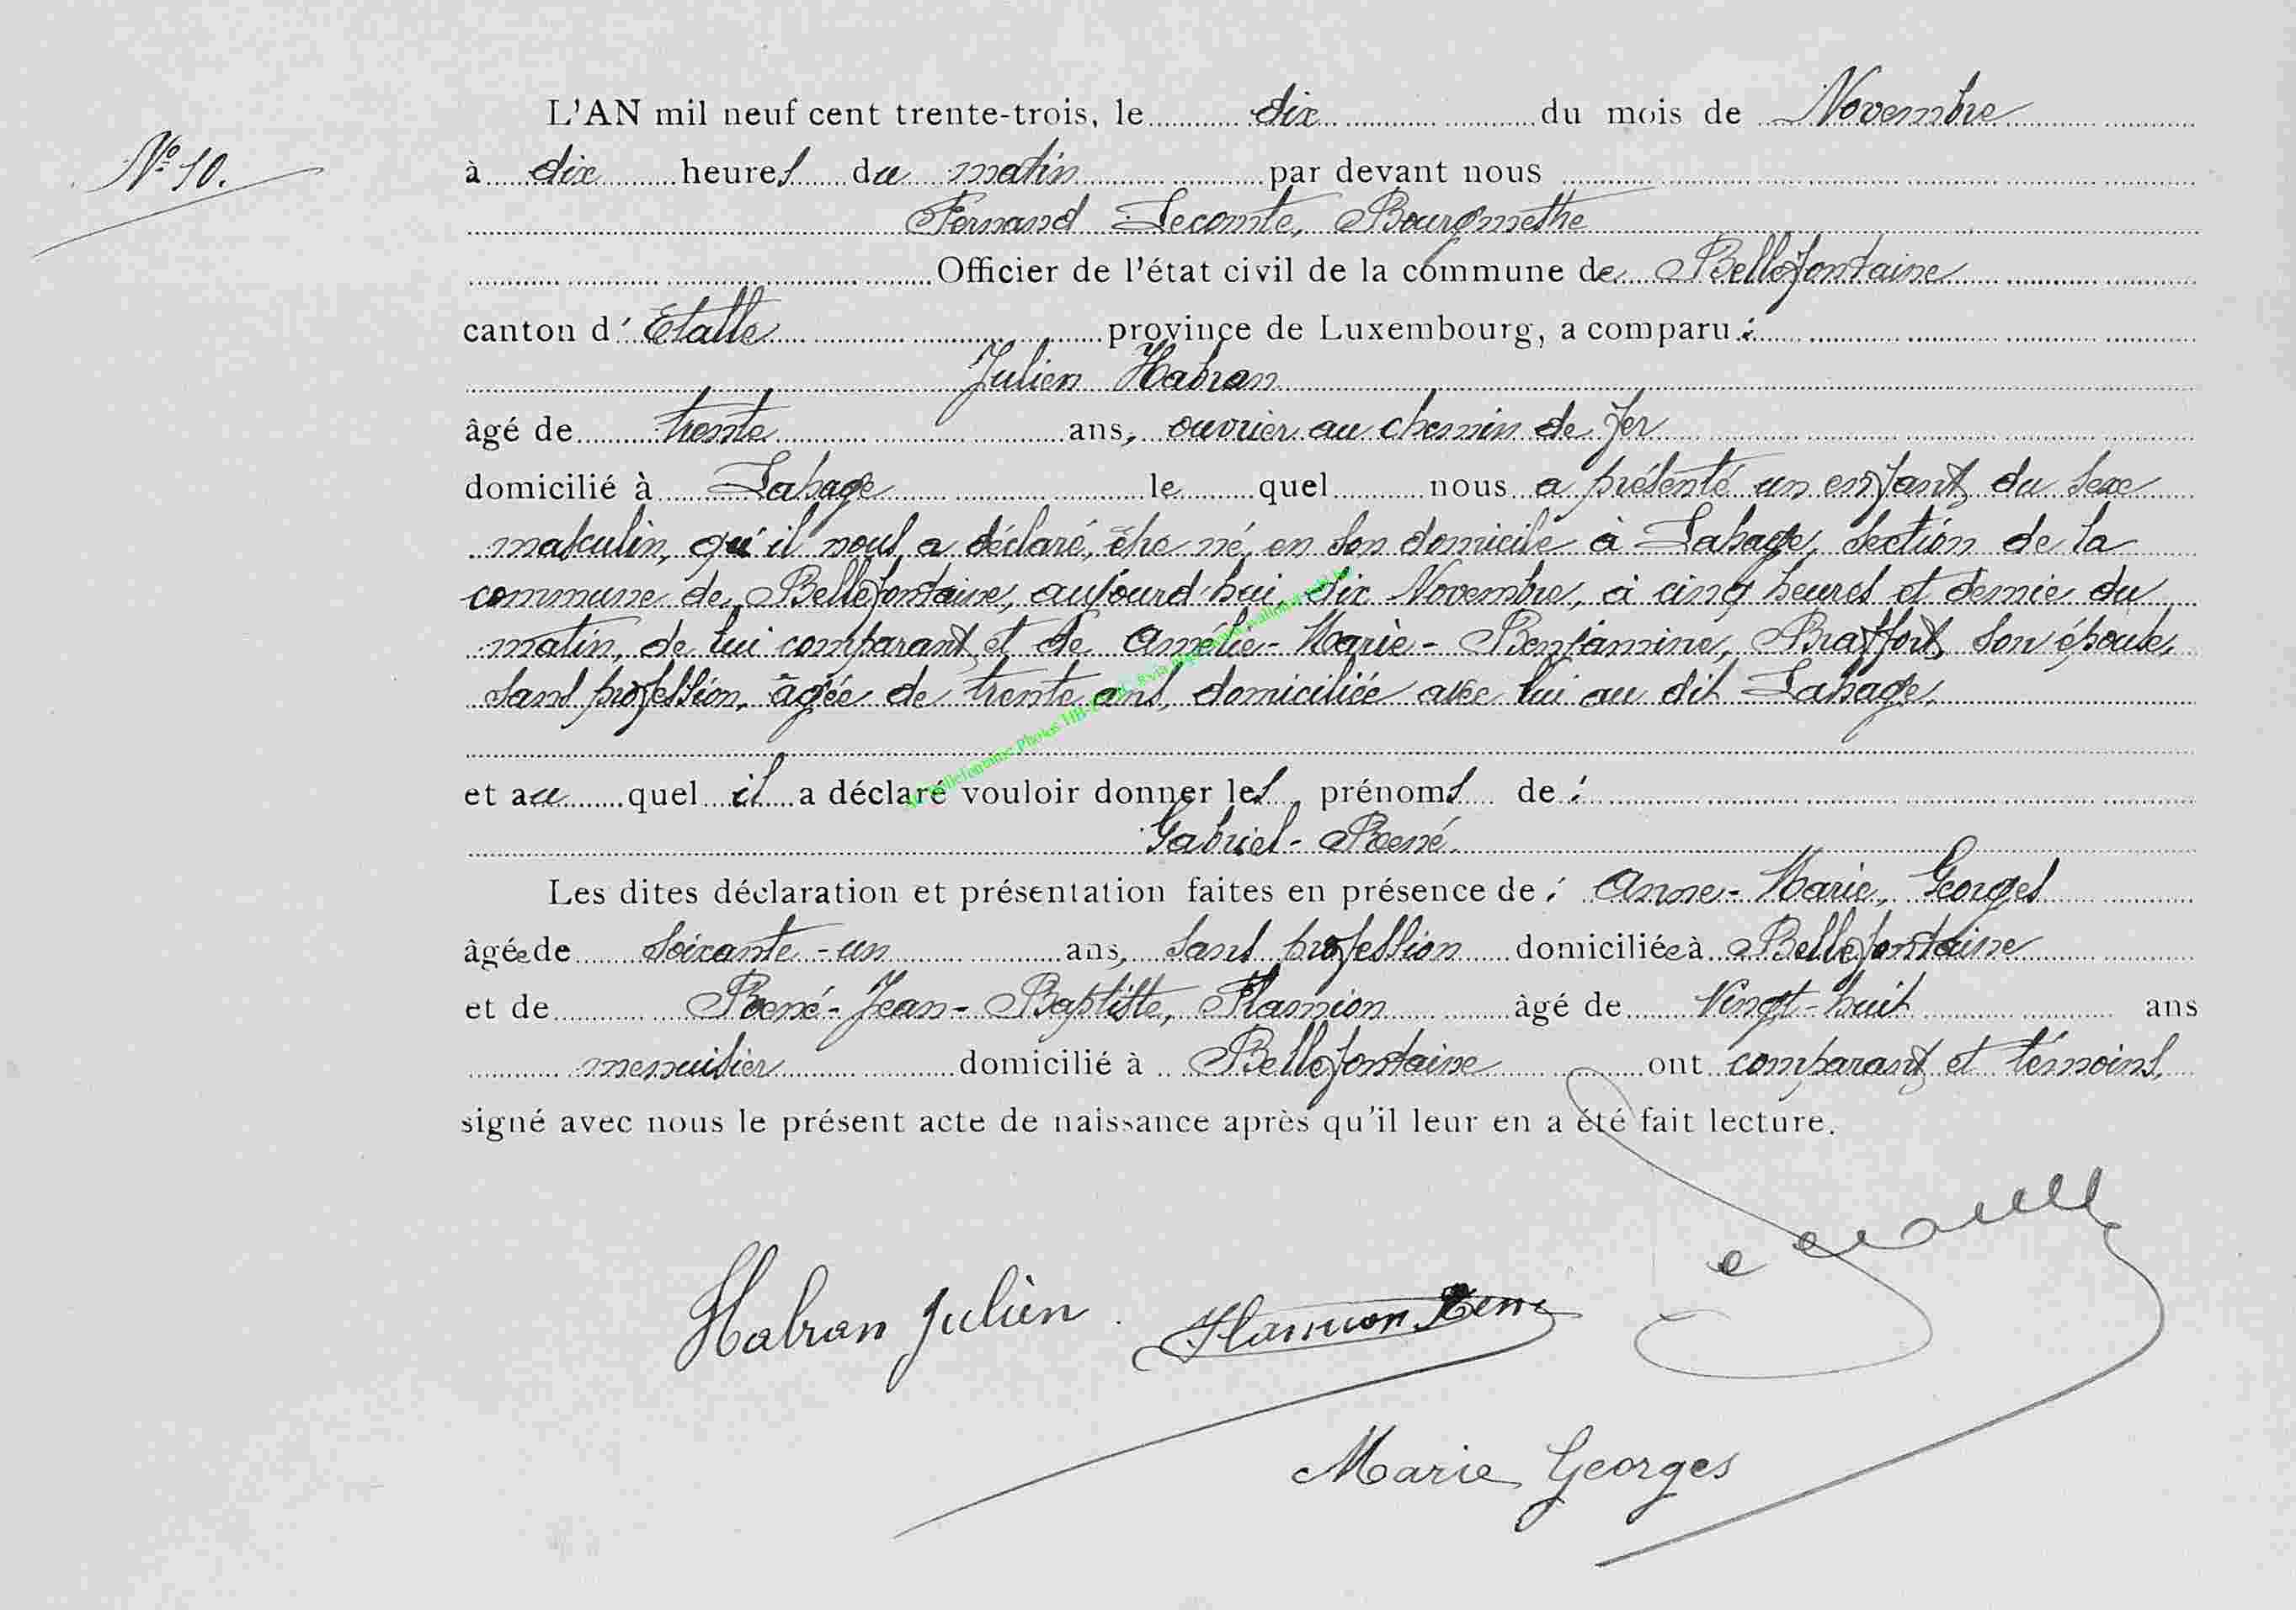 L'AN mil neuf cent trente-trois, le dix du mois de Novembre
N° 10.
à dix heures du matin par devant nous
Fernand Lecomte, Bourgmestre
Officier de l'état civil de la commune de Bellefontaine
canton d'Etalle province de Luxembourg, a comparu :
Julien Habran
âgé de trente ans, ouvrier au chemin de fer
domicilié à Lahage le quel nous a présenté un enfant du sexe
masculin, qu'il nous a déclaré, être né, en son domicile à Lahage, section de la
commune de Bellefontaine, aujourd'hui dix Novembre, à cinq heures et demie du
matin, de lui comparant et de Amélie-Marie-Benjamine, Braffort, son épouse,
sans profession, âgée de trente ans, domiciliée avec lui au dit Lahage.
et au quel il a déclaré vouloir donner les prénoms de :
Gabriel-René.
Les dites déclaration et présentation faites en présence de : Anne-Marie, Georges
âgée de soixante-un ans, sans profession domiciliée à Bellefontaine
et de René-Jean-Baptiste, Flamion âgé de vingt-huit ans
menuisier domicilié à Bellefontaine ont comparant et témoins,
signé avec nous le présent acte de naissance après qu'il leur en a été fait lecture.
Habran Julien
Flamion René
Marie Georges